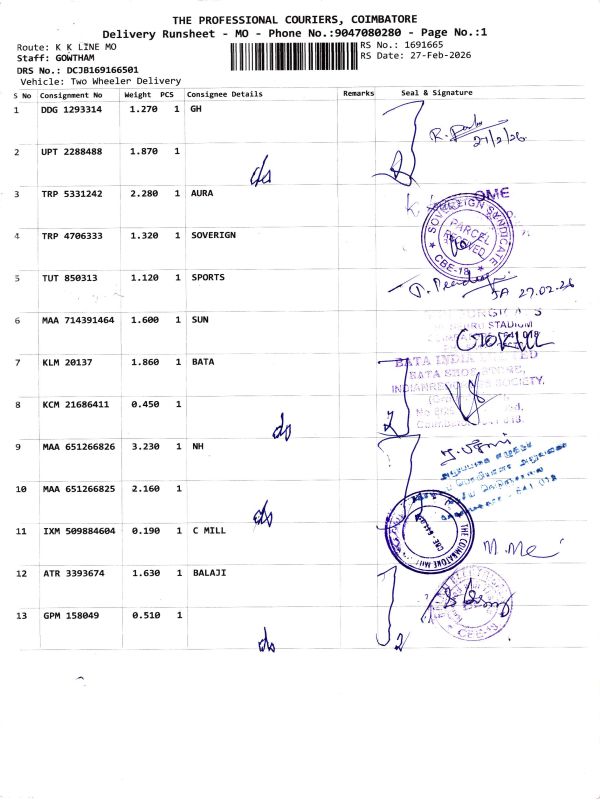 THE PROFESSIONAL COURIERS, COIMBATORE
Delivery Runsheet - MO - Phone No.:9047080280 - Page No.:1
Route: K K LINE MO
RS No.: 1691665
Staff: GOWTHAM
RS Date: 27-Feb-2026
DRS No.: DCJB169166501
Vehicle: Two Wheeler Delivery
S No Consignment No Weight PCS Consignee Details Remarks Seal & Signature
1 DDG 1293314 1.270 1 GH
27/2/26
2 UPT 2288488 1.870 1
do
3 TRP 5331242 2.280 1 AURA
4 TRP 4706333 1.320 1 SOVERIGN
SOVEREIGN SYNDICATE
PARCEL RECEIVED
CBE-18
5 TUT 850313 1.120 1 SPORTS
27.02.26
6 MAA 714391464 1.600 1 SUN
STADIUM
7 KLM 20137 1.860 1 BATA
BATA INDIA LIMITED
BATA SHOE STORE,
SOCIETY,
8 KCM 21686411 0.450 1
do
9 MAA 651266826 3.230 1 NH
10 MAA 651266825 2.160 1
do
11 IXM 509884604 0.190 1 C MILL
THE COIMBATORE
12 ATR 3393674 1.630 1 BALAJI
13 GPM 158049 0.510 1
do
2